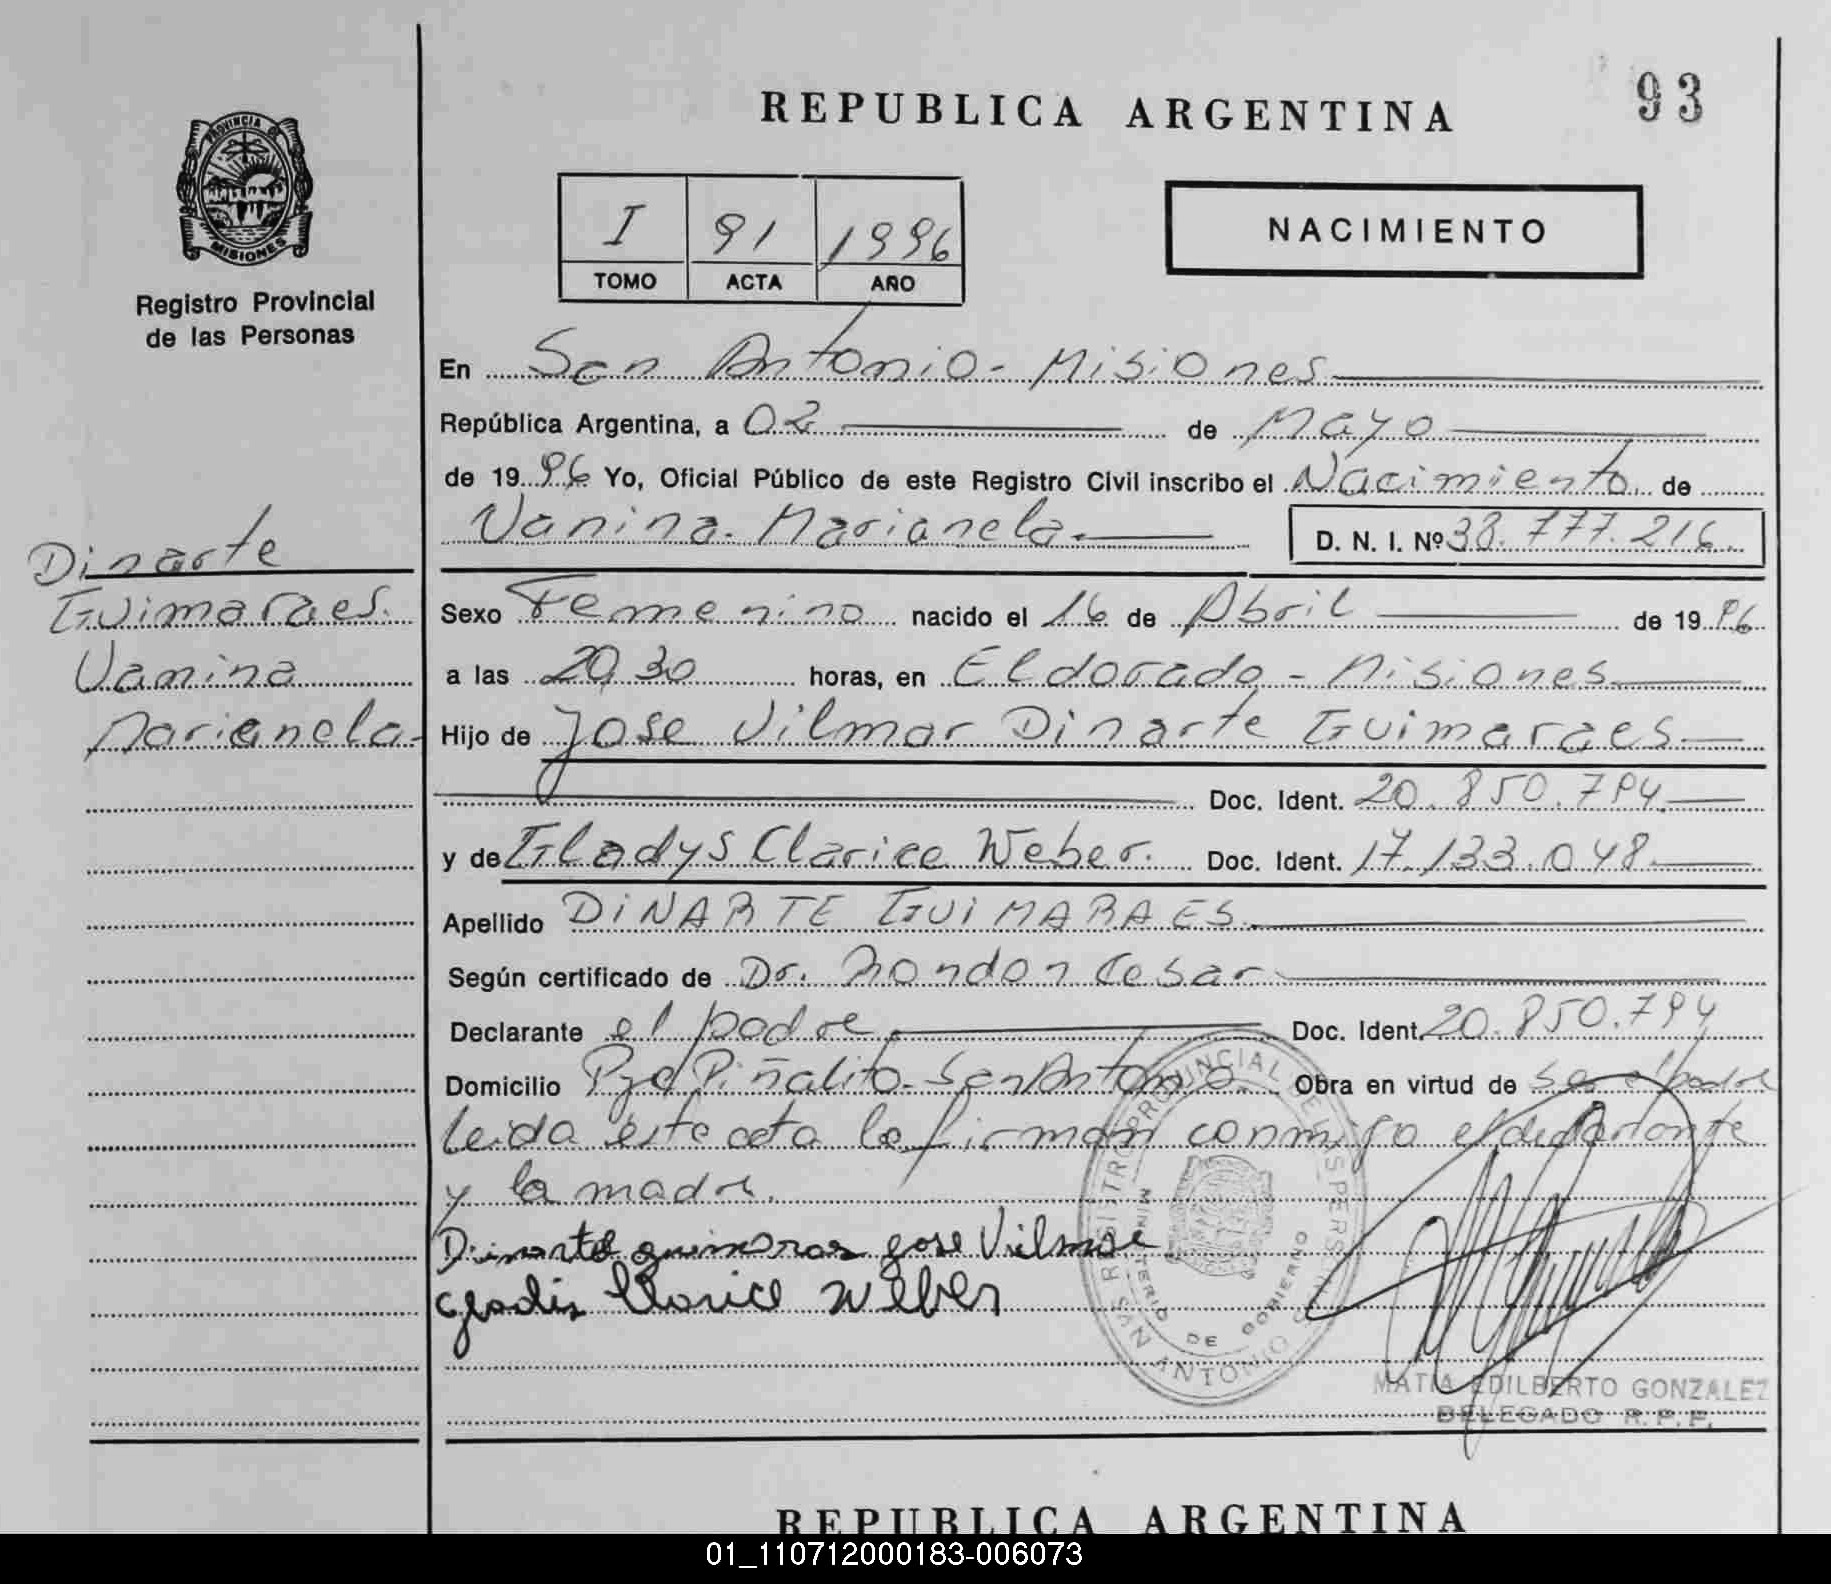 93
REPUBLICA ARGENTINA
PROVINCIA DE
MISIONES
Registro Provincial
de las Personas
I 91 1996
TOMO ACTA AÑO
NACIMIENTO
En San Antonio - Misiones
República Argentina, a 02 de Mayo
de 1996 Yo, Oficial Público de este Registro Civil inscribo el Nacimiento de
Vanina Marianela. D. N. I. Nº 38.777.216
Dinarte
Guimaraes.
Vanina
Marianela.
Sexo Femenino nacido el 16 de Abril de 1996
a las 20,30 horas, en Eldorado - Misiones
Hijo de Jose Vilmar Dinarte Guimaraes
Doc. Ident. 20.850.794
y de Gladys Clarice Weber. Doc. Ident. 17.133.048
Apellido DINARTE GUIMARAES.
Según certificado de Dr. Cesar
Declarante el padre Doc. Ident. 20.850.794
Domicilio Pje Piñalito - San Antonio Obra en virtud de ser el padre
leida este acta la firman conmigo el declarante
y la madre.
Dinarte guimaraes jose Vilmar
gladis Clarice weber
REGISTRO PROVINCIAL DE LAS PERSONAS
MINISTERIO DE GOBIERNO
SAN ANTONIO
MATIA EDILBERTO GONZALEZ
DELEGADO R. P. P.
REPUBLICA ARGENTINA
01_110712000183-006073